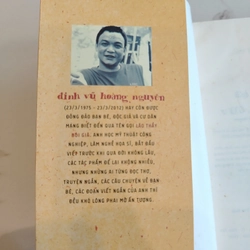 đinh vũ hoàng nguyên
(23/3/1975 - 23/3/2012) HAY CÒN ĐƯỢC
ĐÔNG ĐẢO BẠN BÈ, ĐỘC GIẢ VÀ CƯ DÂN
MẠNG BIẾT ĐẾN QUA TÊN GỌI LÃO THẦY
BÓI GIÀ. ANH HỌC MỸ THUẬT CÔNG
NGHIỆP, LÀM NGHỀ HỌA SĨ, BẮT ĐẦU
VIẾT TRƯỚC KHI QUA ĐỜI KHÔNG LÂU,
CÁC TÁC PHẨM ĐỂ LẠI KHÔNG NHIỀU,
NHƯNG KHÔNG AI TỪNG ĐỌC THƠ,
TRUYỆN NGẮN, CÁC CÂU CHUYỆN VỀ BẠN
BÈ, CÁC ĐOẢN VIẾT NGẮN CỦA ANH THÌ
ĐỀU KHÓ LÒNG PHAI MỜ ẤN TƯỢNG.